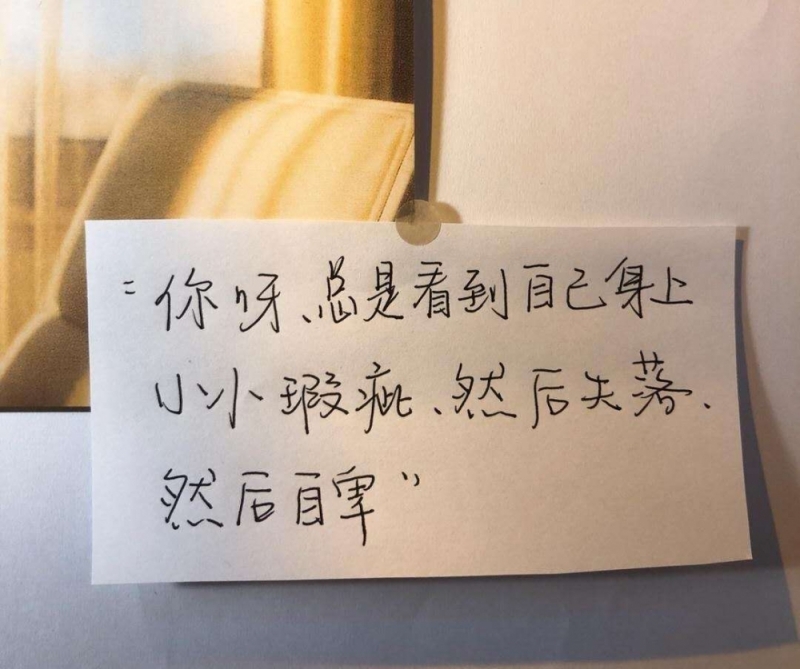 “你呀、总是看到自己身上
小小瑕疵、然后失落、
然后自卑”